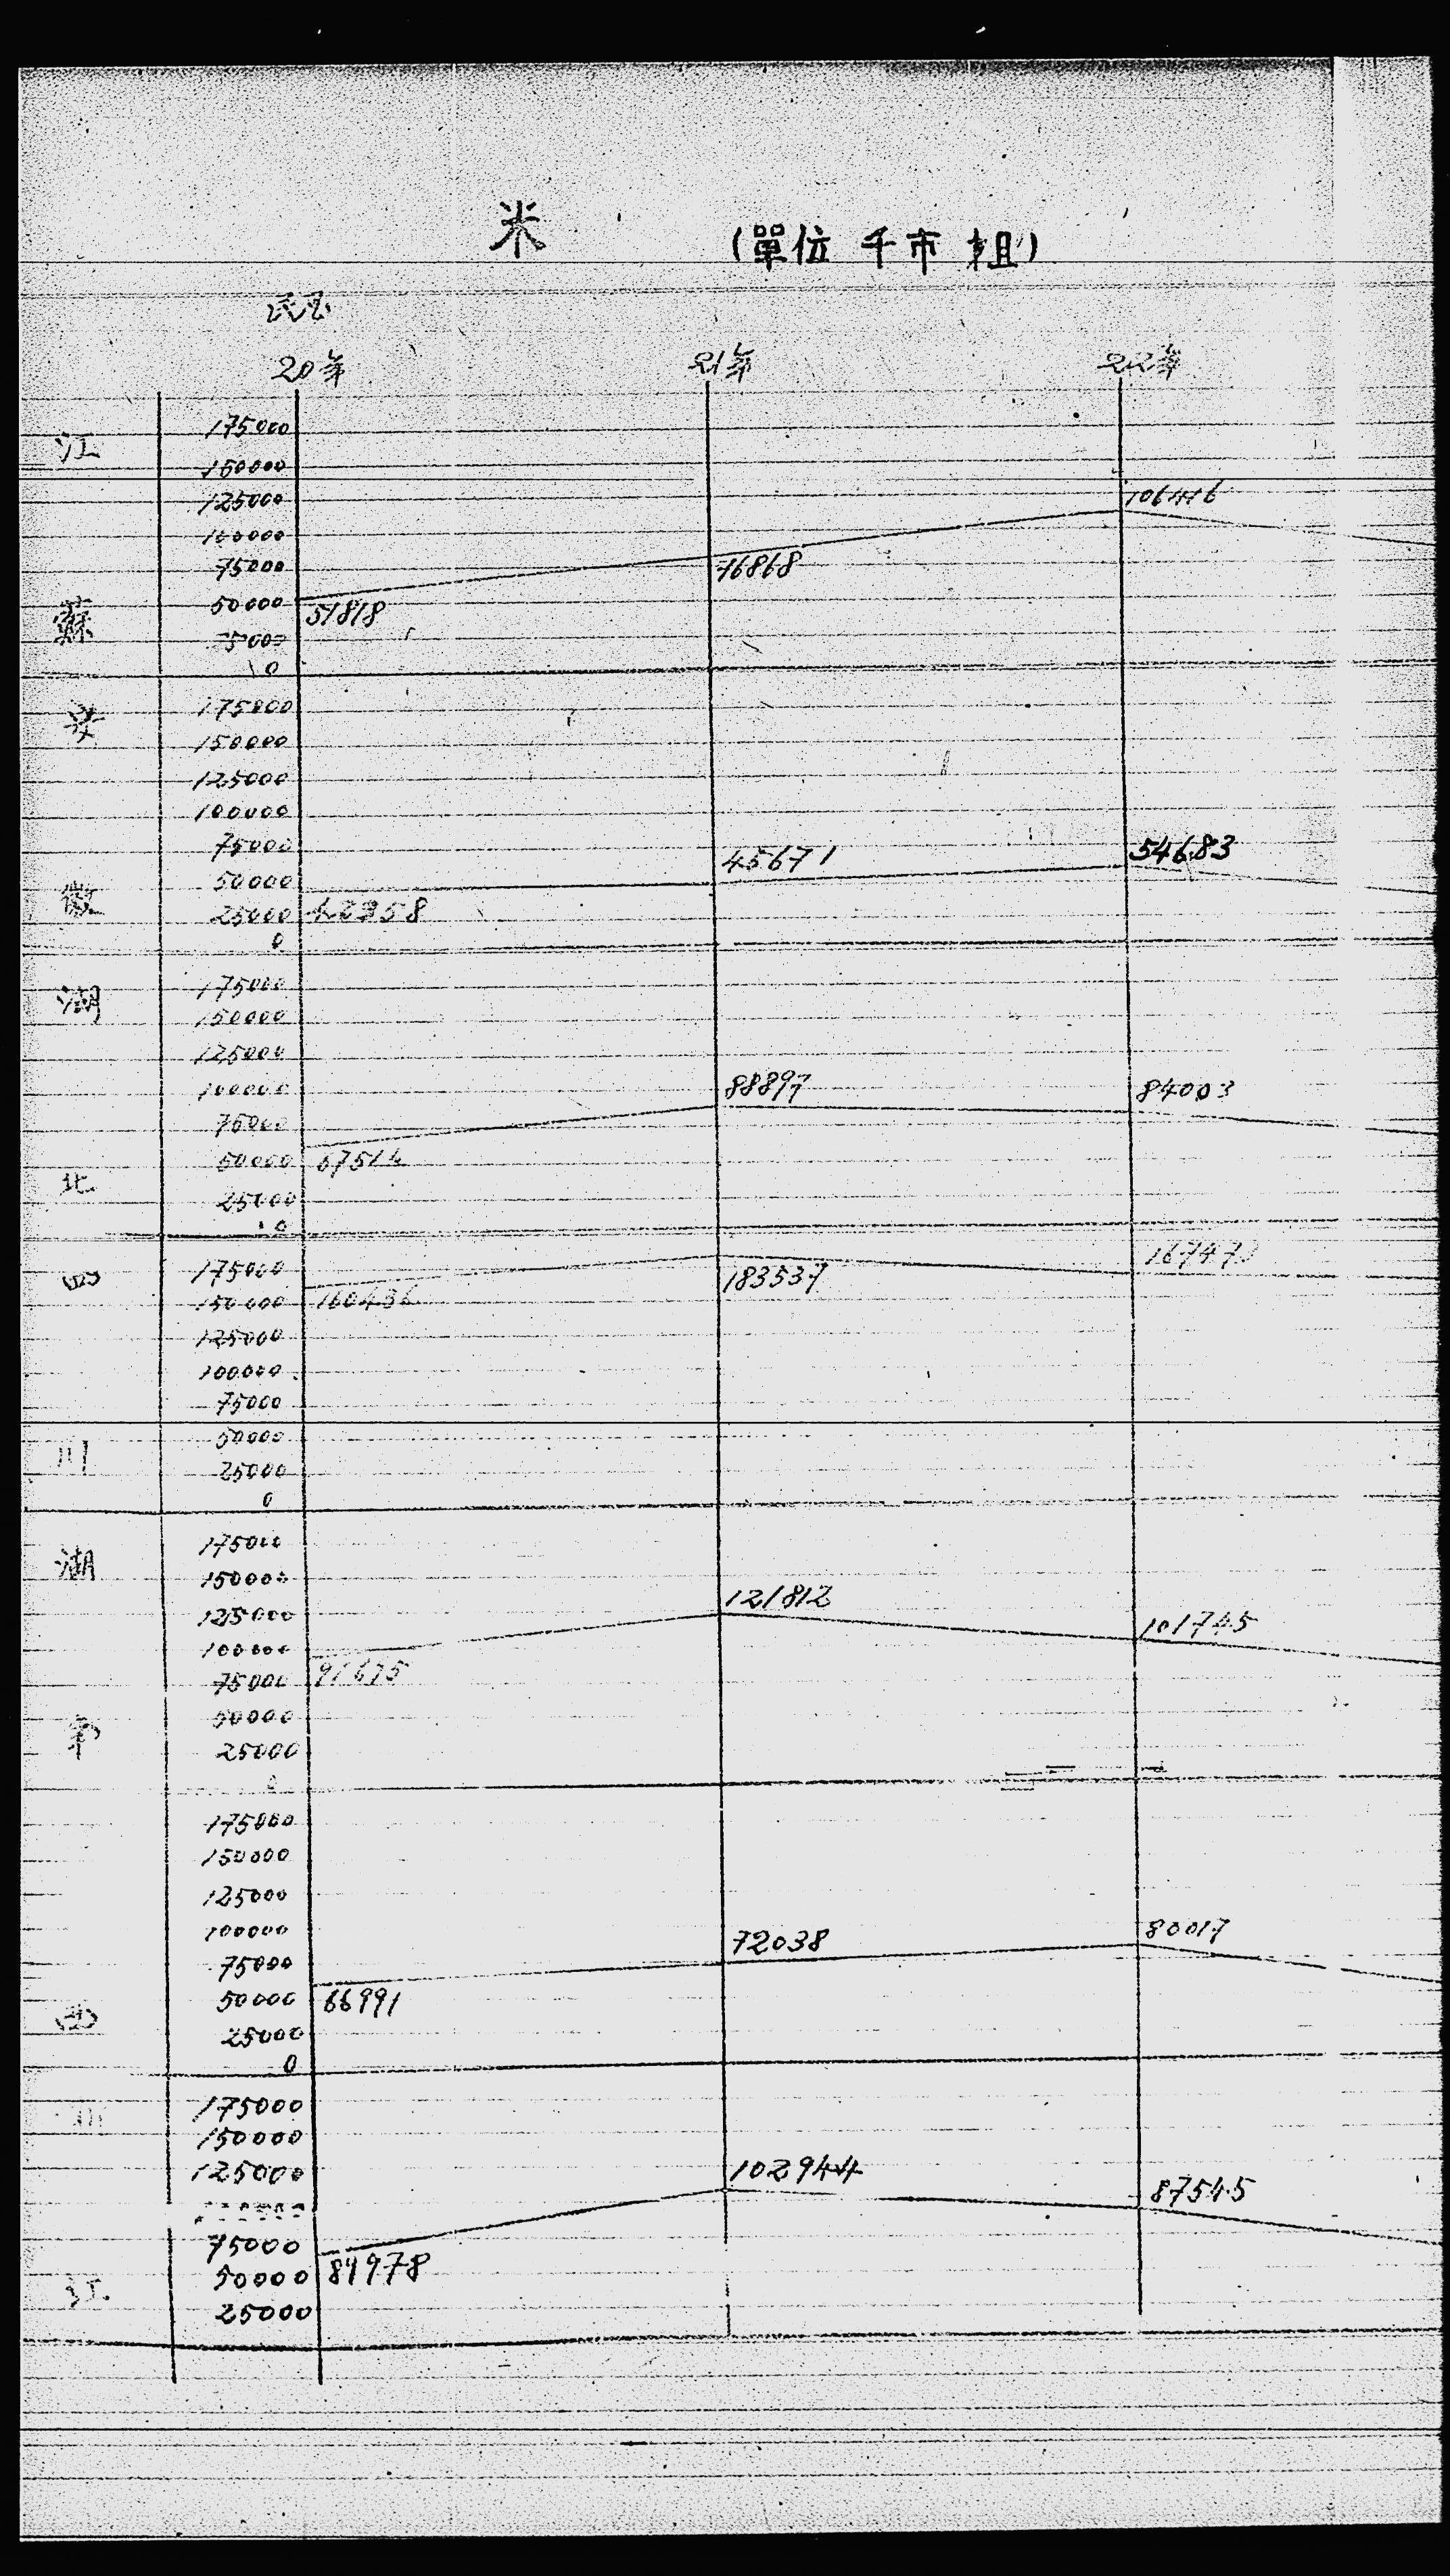 米 (單位 千市担)
民国
20年 21年 22年
江蘇
175000
150000
125000
100000
75000
50000
0
51818 76868 106416
安徽
175000
150000
125000
100000
75000
50000
25000
0
45671 54683
湖北
175000
150000
125000
100000
75000
50000
25000
0
67514 88897 84003
四川
175000
150000
125000
100000
75000
50000
25000
0
160436 183537
湖
175000
150000
125000
100000
75000
50000
25000
0
91675 121812 101745
西
175000
150000
125000
100000
75000
50000
25000
0
66991 72038 80017
江
175000
150000
125000
75000
50000
25000
84978 102944 87545